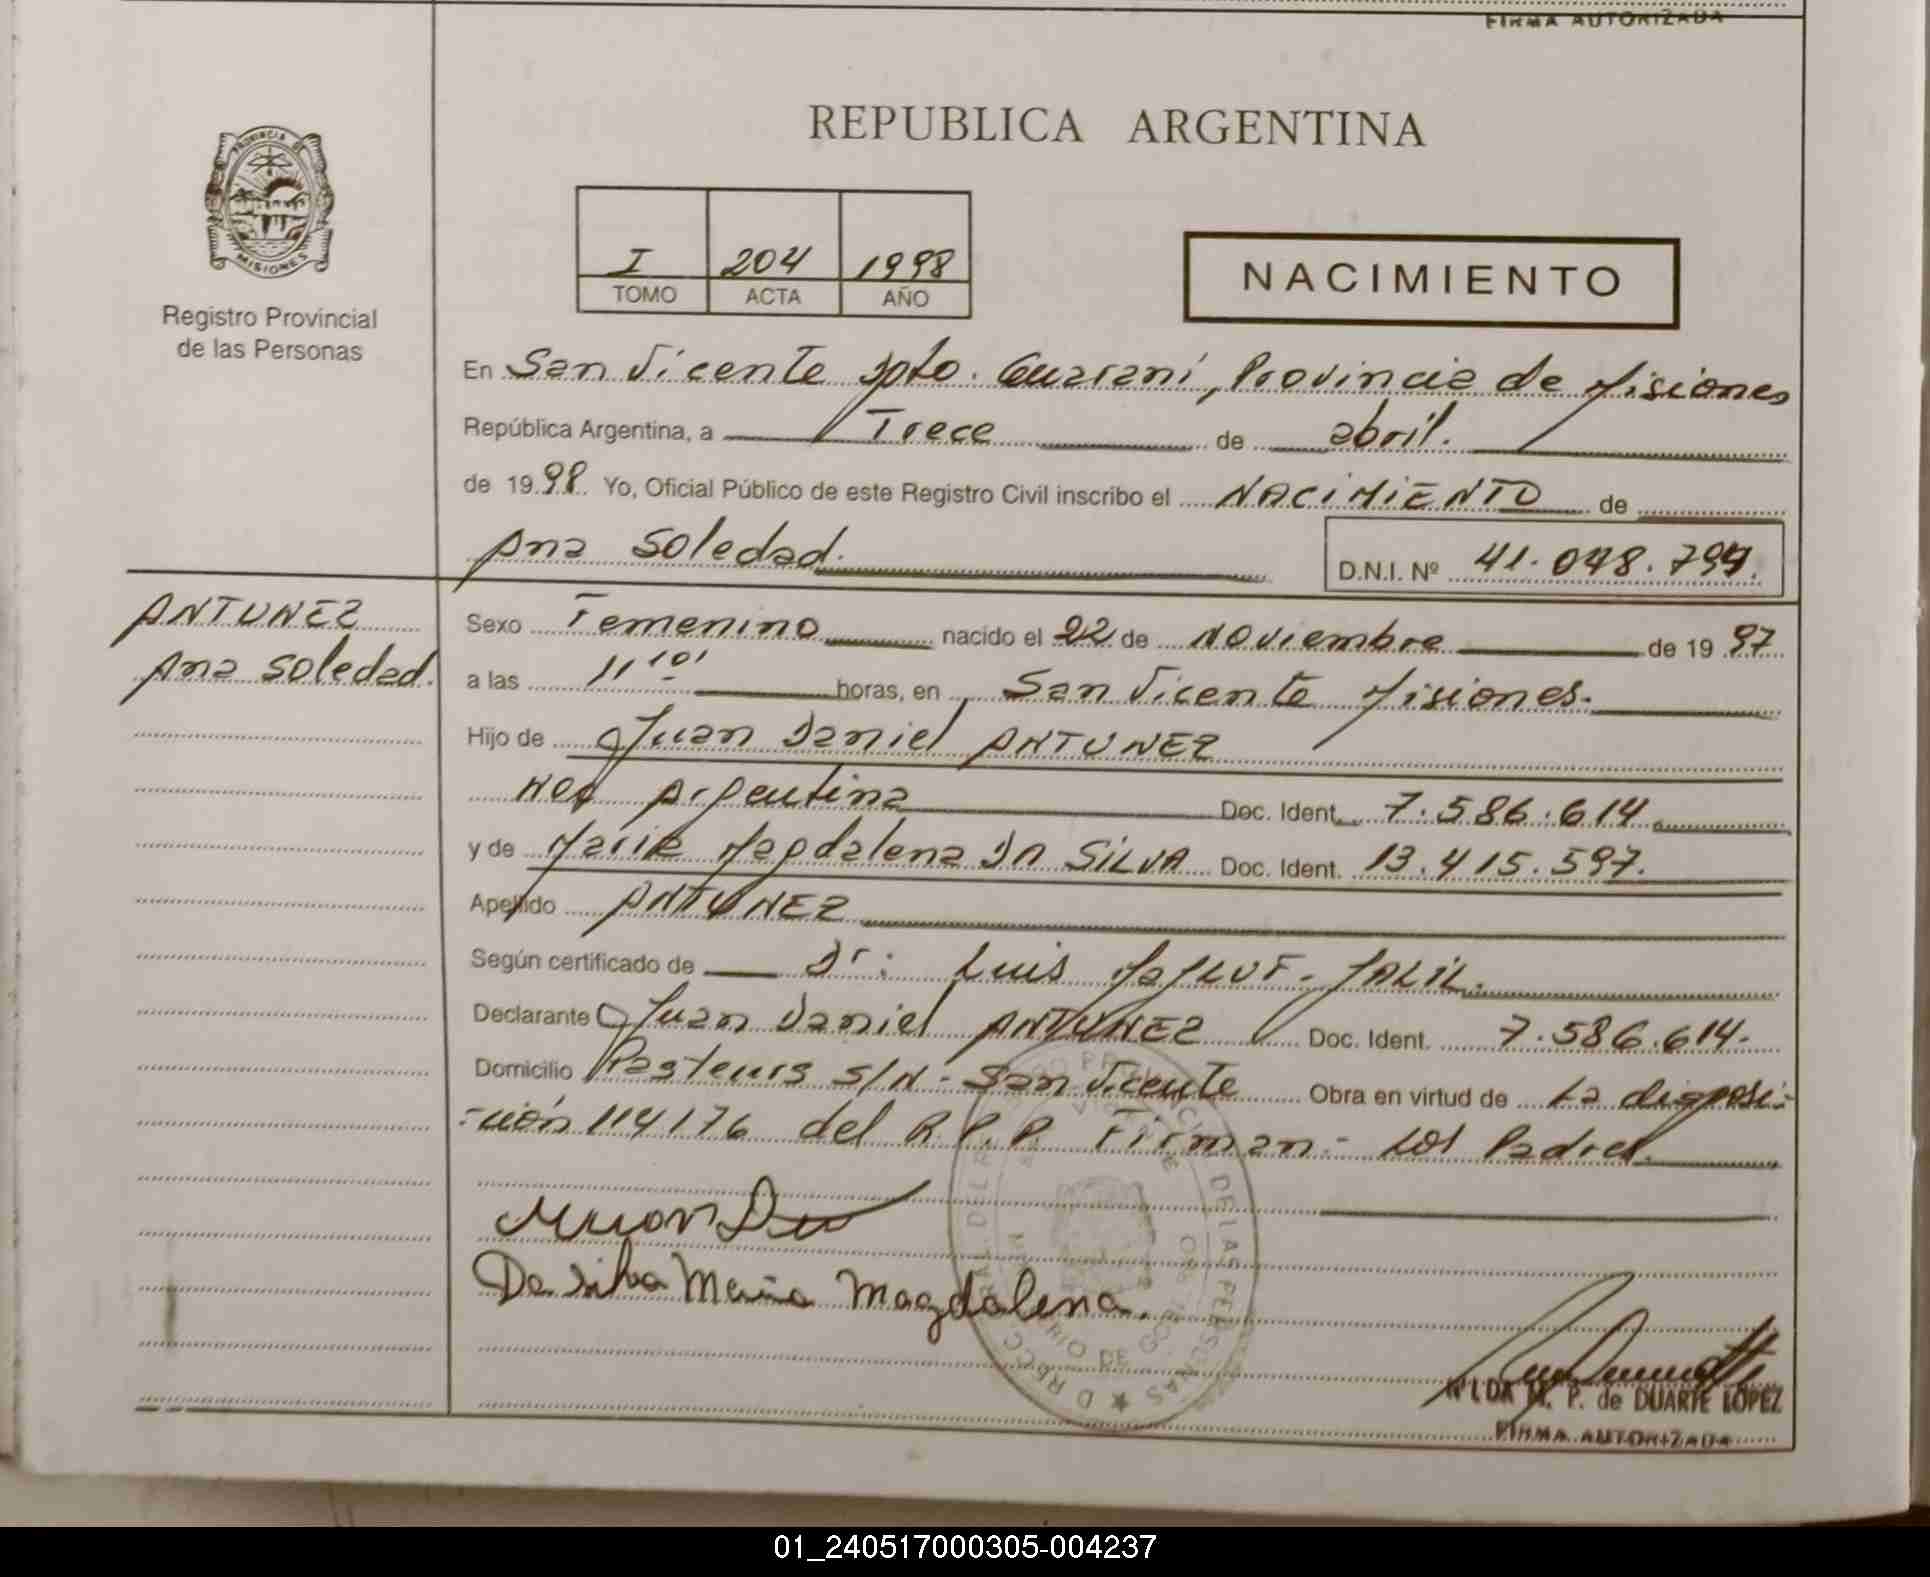 FIRMA AUTORIZADA
REPUBLICA ARGENTINA
PROVINCIA DE
MISIONES
Registro Provincial
de las Personas
I 204 1998
TOMO ACTA AÑO
NACIMIENTO
En San Vicente Dpto. Guaraní, Provincia de Misiones
República Argentina, a Trece de abril.
de 1998 Yo, Oficial Público de este Registro Civil inscribo el NACIMIENTO de
Ana Soledad.
D.N.I. Nº 41.048.794.
ANTUNEZ
Ana Soledad.
Sexo Femenino nacido el 22 de Noviembre de 1997
a las 11'10' horas, en San Vicente Misiones.
Hijo de Juan Daniel ANTUNEZ
Argentina Doc. Ident. 7.586.614
y de Maria Magdalena DA SILVA Doc. Ident. 13.415.597.
Apellido ANTUNEZ
Según certificado de Dr: Luis JALIL.
Declarante Juan Daniel ANTUNEZ Doc. Ident. 7.586.614.
Domicilio S/N - San Vicente Obra en virtud de La disposi-
-ción 114176 del R.P.P. Firman - Los Padres.
Da Silva Maria Magdalena.
NILDA M. P. de DUARTE LOPEZ
FIRMA AUTORIZADA
01_240517000305-004237